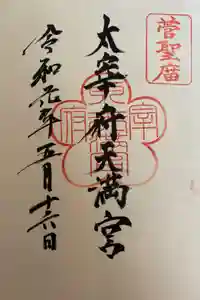 菅聖庿
太宰府天満宮
令和元年五月十六日